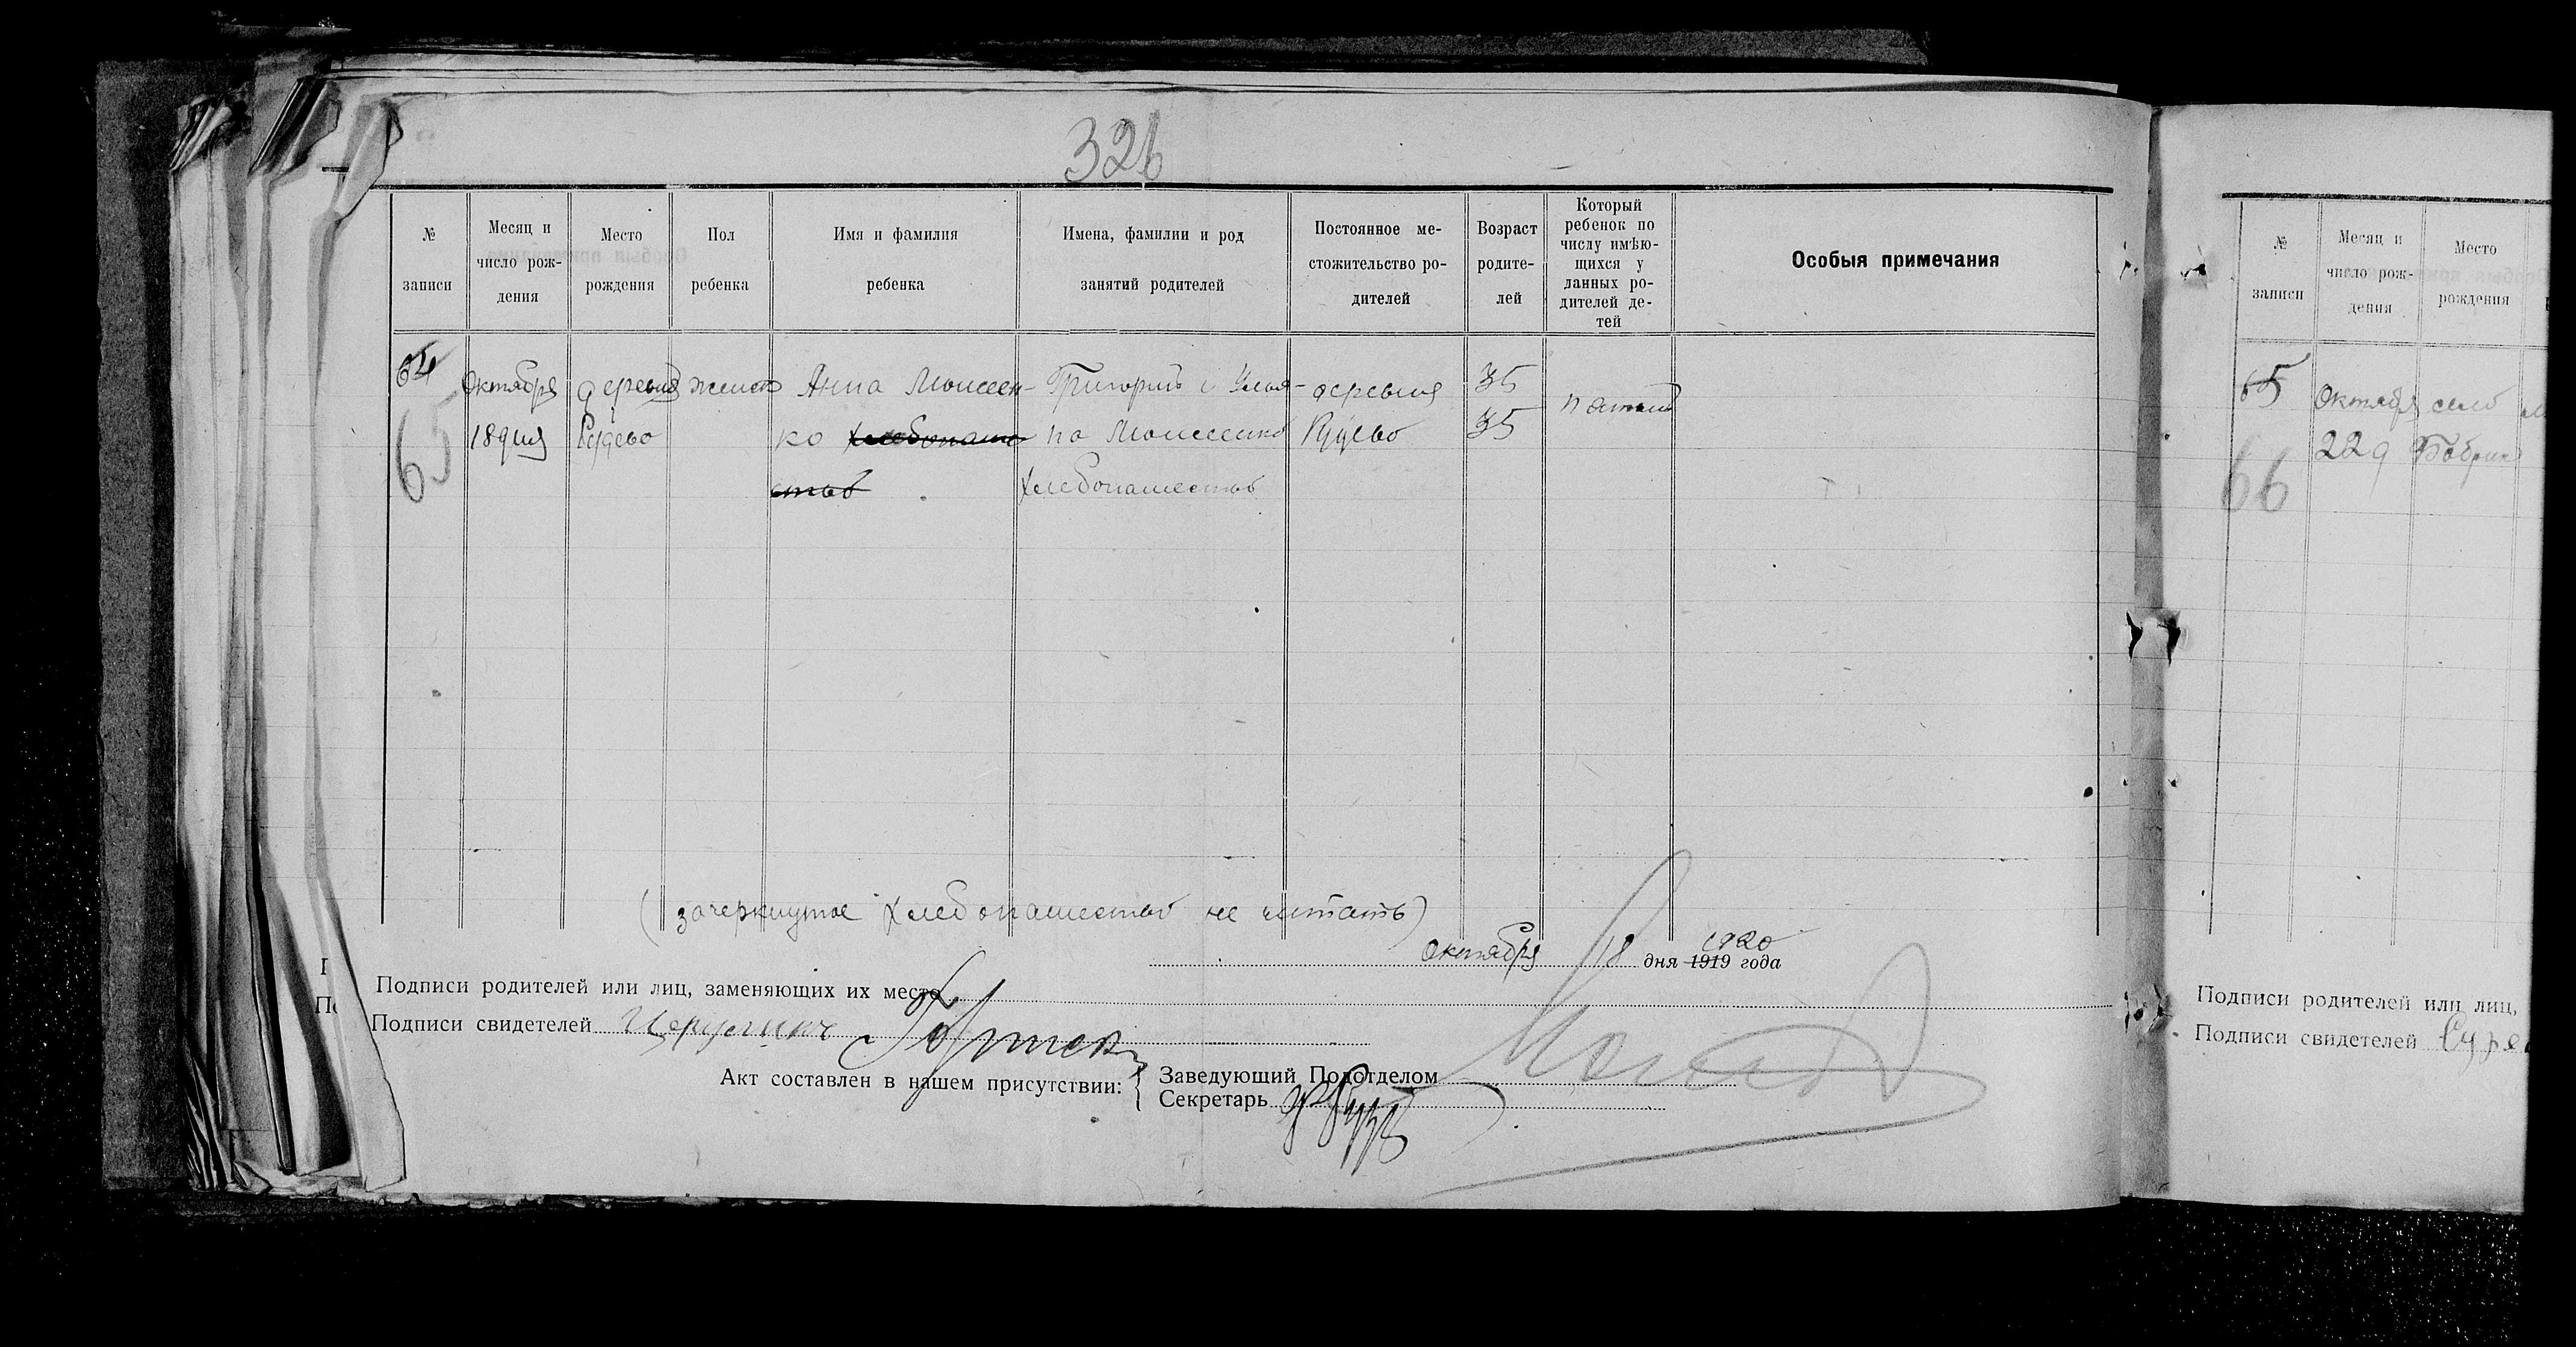 326
№ записи
Месяц и число рождения
Место рождения
Пол ребенка
Имя и фамилия ребенка
Имена, фамилии и род занятий родителей
Постоянное местожительство родителей
Возраст родителей
Который ребенок по числу имѣющихся у данных родителей детей
Особыя примечания
64 Октября деревня женск Анна Моисеен- Григорий и Улья- деревня 35 пятый
65 18 дня Рудево ко хлебопаше на Моисеенко Рудево 35
ство хлебопашество
(зачеркнутое хлебопашество не читать)
Октября 18 дня 1919 1920 года
Подписи родителей или лиц, заменяющих их место
Подписи свидетелей
Акт составлен в нашем присутствии:
Заведующий Подотделом
Секретарь
№ записи
Месяц и число рождения
Место рождения
65 Октября село
66 22 д
Подписи родителей или лиц,
Подписи свидетелей